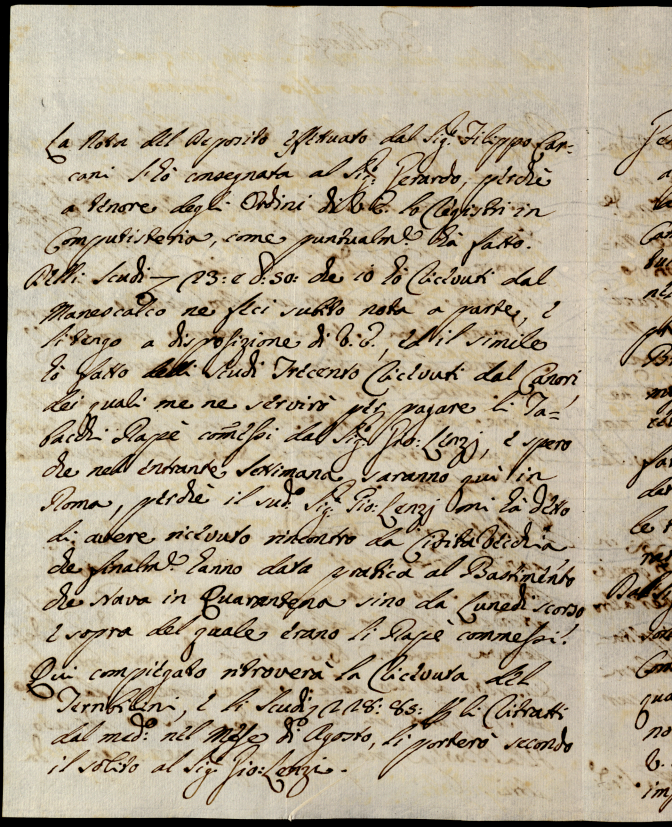 La Nota del Deposito effettuato dal Sig.r Filippo Car=
cani l'hò consegnata al Sig.r Gerardo, perchè
a tenore degli Ordini di V.E. lo Registri in
Computisteria, come puntualm.e hà fatto.
Delli Scudi 123: e b: 30: che io hò ricevuti dal
Manescalco ne feci subito nota a parte, e
li tengo a disposizione di V.E., ed il simile
hò fatto delli scudi Trecento ricevuti dal Canori,
dei quali me ne servirò per pagare li Ta=
bacchi Rapè commessi dal Sig.r Gio: Lenzj, e spero
che nell'entrante Settimana saranno quì in
Roma, perchè il sud.o Sig.r Gio: Lenzj mi hà detto
di avere ricevuto rincontro da Civita Vecchia
che finalm.e hanno data pratica al Bastimento
che stava in Quarantena sino da Lunedì scorso
e sopra del quale erano li Rapè commessi.
Qui compiegato ritroverà la Ricevuta del
e li Scudi 128: 83: li Ritratti
dal med.o nel Mese di Agosto, li porterò secondo
il solito al Sig.r Gio: Lenzi.